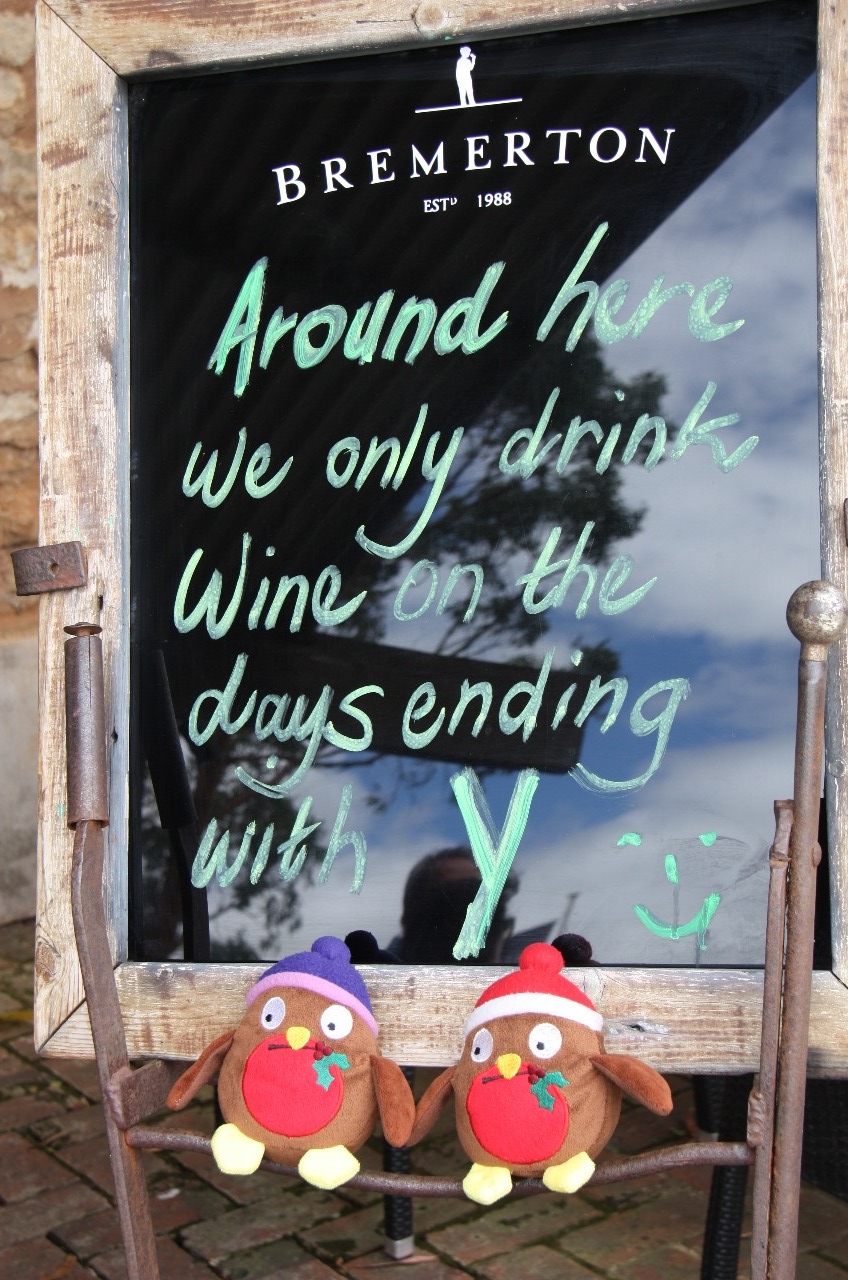 BREMERTON
ESTD 1988
Around here
we only drink
Wine on the
days ending
with Y